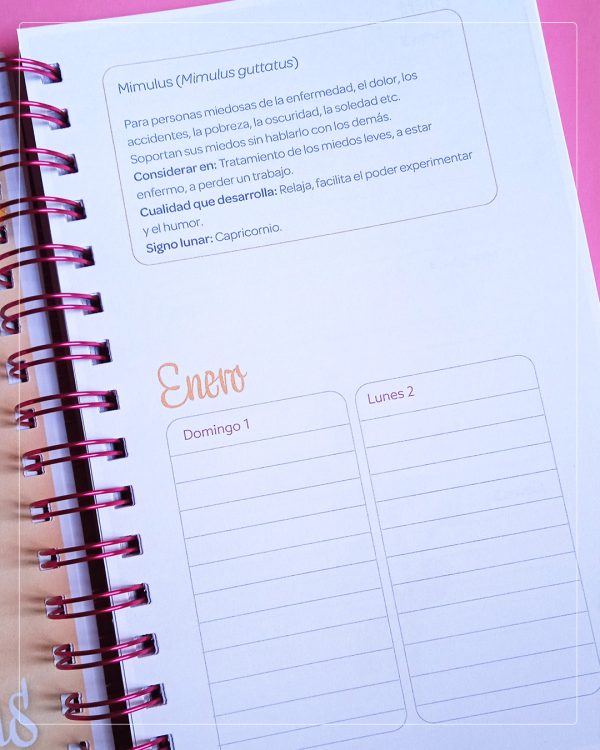 Mimulus (Mimulus guttatus)
Para personas miedosas de la enfermedad, el dolor, los
accidentes, la pobreza, la oscuridad, la soledad etc.
Soportan sus miedos sin hablarlo con los demás.
Considerar en: Tratamiento de los miedos leves, a estar
enfermo, a perder un trabajo.
Cualidad que desarrolla: Relaja, facilita el poder experimentar
y el humor.
Signo lunar: Capricornio.
Enero
Domingo 1
Lunes 2